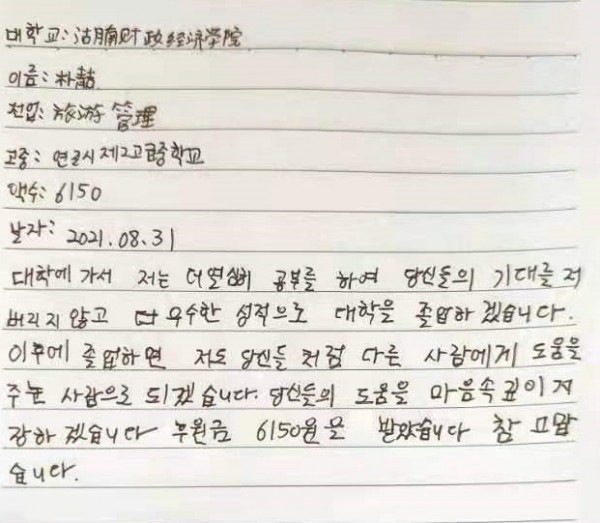 대학교: 湖南财政经济学院
이름: 朴喆
전업: 旅游 管理
고중: 연길시 제2고급중학교
액수: 6150
날자: 2021.08.31
대학에 가서 저는 더 열심히 공부를 하여 당신들의 기대를 저
버리지 않고 더 우수한 성적으로 대학을 졸업하겠습니다.
이후에 졸업하면 저도 당신들 처럼 다른 사람에게 도움을
주는 사람으로 되겠습니다. 당신들의 도움을 마음속 깊이 저
장하겠습니다 후원금 6150원을 받았습니다 참 고맙
습니다.